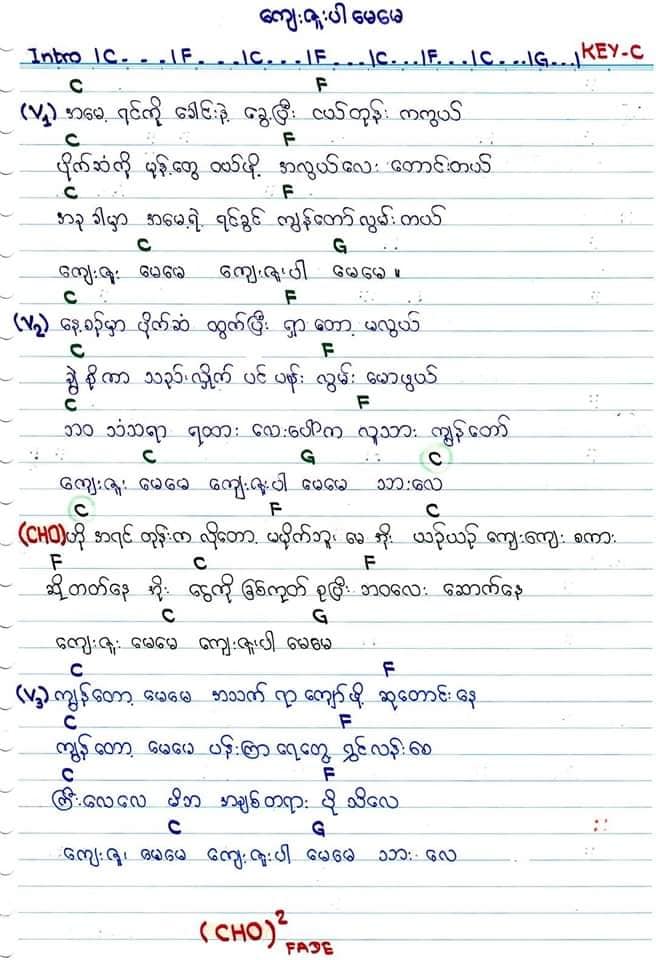 ကျေးဇူးပါ မေမေ
Intro |C....|F....|C....|F....|C....|F....|C....|G....| KEY-C
C F
(V1) အမေ့ ရင်ကို ခေါင်းနဲ့ ခွေ့ပြီး ငယ်တုန်း ကကွယ်
C F
ပိုက်ဆံကို မုန့်တွေ ဝယ်ဖို့ အလွယ်လေး တောင်းတယ်
C F
အခု ခါမှာ အမေ့ရဲ့ ရင်ခွင် ကျွန်တော် လွမ်းတယ်
C G
ကျေးဇူး မေမေ ကျေးဇူးပါ မေမေ ။
C F
(V2) နေ့စဉ်မှာ ပိုက်ဆံ ထွက်ပြီး ရှာတော့ မလွယ်
C F
ချွဲ စိုကာ သည်းလှိုက် ပင် ပန်း လွမ်း မောဖွယ်
C F
ဘဝ သံသရာ ရထား လေးပေါ်က လူသား ကျွန်တော်
C G C
ကျေးဇူး မေမေ ကျေးဇူးပါ မေမေ သားလေ
C F C
(CHO) ဟို အရင် တုန်းက လိုတော့ မပိုက်ဘူး မေ အိုး ယဉ်ယဉ် ကျေးကျေး စကား
F C F
ဆို တတ်နေ အိုး ငွေကို ခြစ်ကုတ် စုပြီး ဘဝလေး ဆောက်နေ
C G
ကျေးဇူး မေမေ ကျေးဇူးပါ မေမေ
C F
(V3) ကျွန်တော့ မေမေ အသက် ရာ ကျော်ဖို့ ဆုတောင်းနေ
C F
ကျွန်တော့ မေမေ ပန်းကြာ ရေတွေ ရွှင်လန်းစေ
C F
ကြီးလေလေ မိဘ အချစ်တရား ပို သိလေ
C G
ကျေးဇူး မေမေ ကျေးဇူးပါ မေမေ သား လေ
(CHO)2 FADE